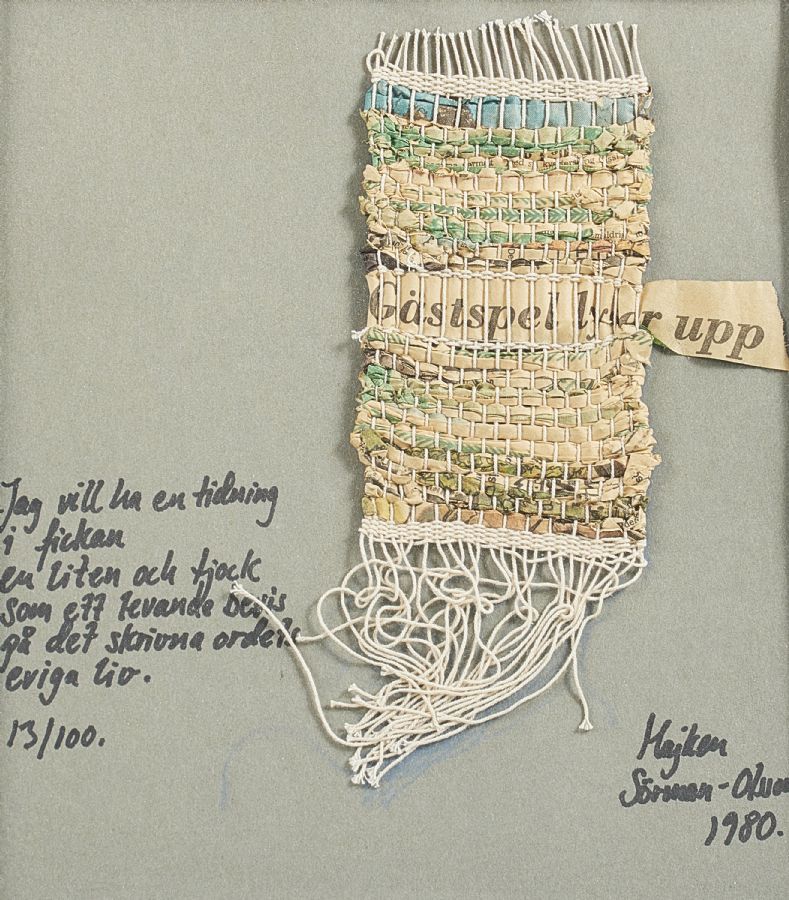 Gästspel lyser upp
Jag vill ha en tidning
i fickan
en liten och tjock
som ett levande bevis
på det skrivna ordets
eviga liv.
13/100.
Majken
Sörman-Olsson
1980.